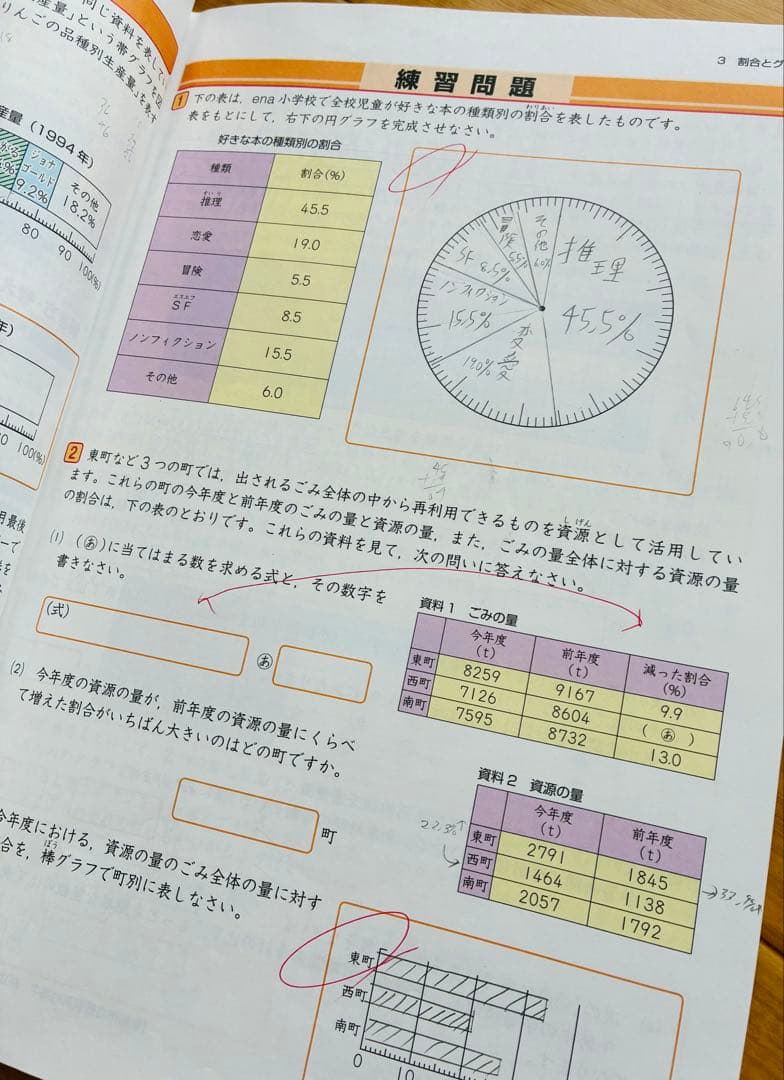 同じ資料を表してい
産量」という帯グラフを図
りんごの品種別生産量」を表す
産量(1994年)
ジョナ
ゴールド
9.2%
その他
18.2%
80 90 100(%)
100(%)
月最後
3 割合とグ
練習問題
1 下の表は,ena小学校で全校児童が好きな本の種類別の割合を表したものです。
わりあい
表をもとにして,右下の円グラフを完成させなさい。
好きな本の種類別の割合
種類 割合(%)
すいり
推理 45.5
恋愛 19.0
冒険 5.5
エスエフ
SF 8.5
ノンフィクション 15.5
その他 6.0
推理
45.5%
愛
19.0%
ノンフィクション
15.5%
SF
8.5%
冒険
5.5%
その他
6.0%
2 東町など3つの町では,出されるごみ全体の中から再利用できるものを資源として活用してい
しげん
ます。これらの町の今年度と前年度のごみの量と資源の量,また,ごみの量全体に対する資源の量
の割合は,下の表のとおりです。これらの資料を見て,次の問いに答えなさい。
(1) (あ)に当てはまる数を求める式と,その数字を
書きなさい。
(式)
あ
資料1 ごみの量
今年度(t) 前年度(t) 減った割合(%)
東町 8259 9167 9.9
西町 7126 8604 (あ)
南町 7595 8732 13.0
(2) 今年度の資源の量が,前年度の資源の量にくらべ
て増えた割合がいちばん大きいのはどの町ですか。
町
資料2 資源の量
今年度(t) 前年度(t)
東町 2791 1845
西町 1464 1138
南町 2057 1792
今年度における,資源の量のごみ全体の量に対す
合を,棒グラフで町別に表しなさい。
ぼう
東町
西町
南町
0 10